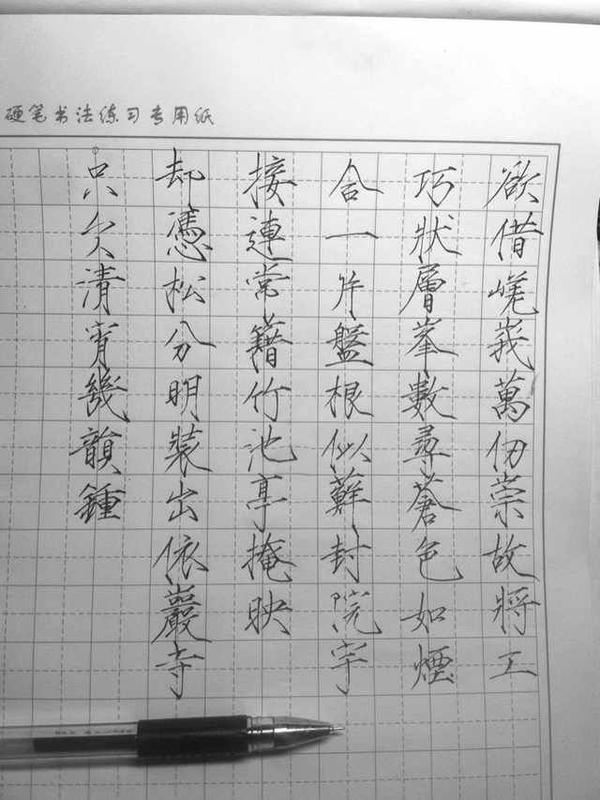 硬笔书法练习专用纸
欲借嵯峩萬仞崇故將工
巧狀層峯數尋蒼色如煙
合一片盤根似蘚封院宇
接連常籍竹池亭掩映
却憑松分明裝出依巖寺
只欠清宵幾韻鍾